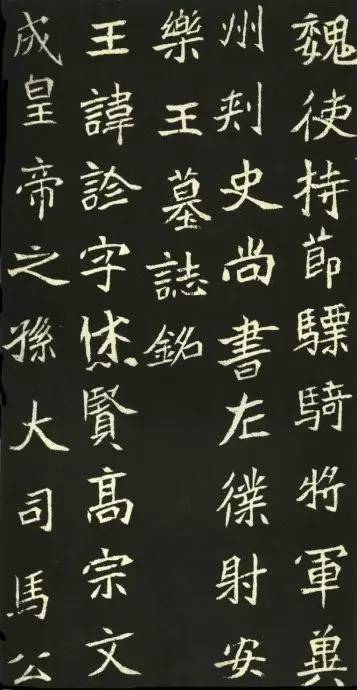 魏使持節驃騎將軍兾
州刾史尚書左僕射安
樂王墓誌銘
王諱詮字休賢高宗文
成皇帝之孫大司馬公